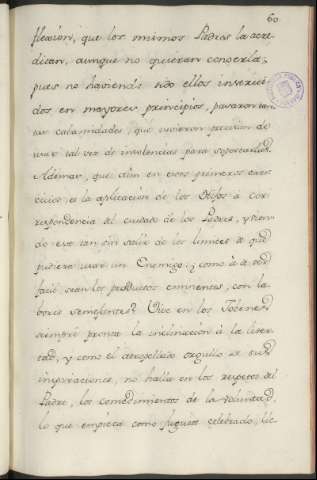 60
flexion, que los mismos Padres la acre-
ditan, aunque no quieran conocerla;
pues no haviendo sido ellos instrui-
dos en mayores principios, pasaron tan
tas calamidades, que tuvieron precision de
usar tal vez de insolencias para soportarlas.
Ademas, que aun en esos primeros
es la aplicacion de los Hijos à cor
respondencia al cuidado de los Padres, y
de eso tan sin salir de los limites à que
pudiera usar un Enemigo; ¿como à de ser
facil sean los productos eminentes, con la
bores semejantes? Vive en los Jobenes
siempre pronta la inclinacion à la liber
tad, y como el atropellado orgullo de sus
inspiraciones, no halla en los respetos del
Padre, los comedimientos de la voluntad,
lo que empieza como juguete celebrado, lle